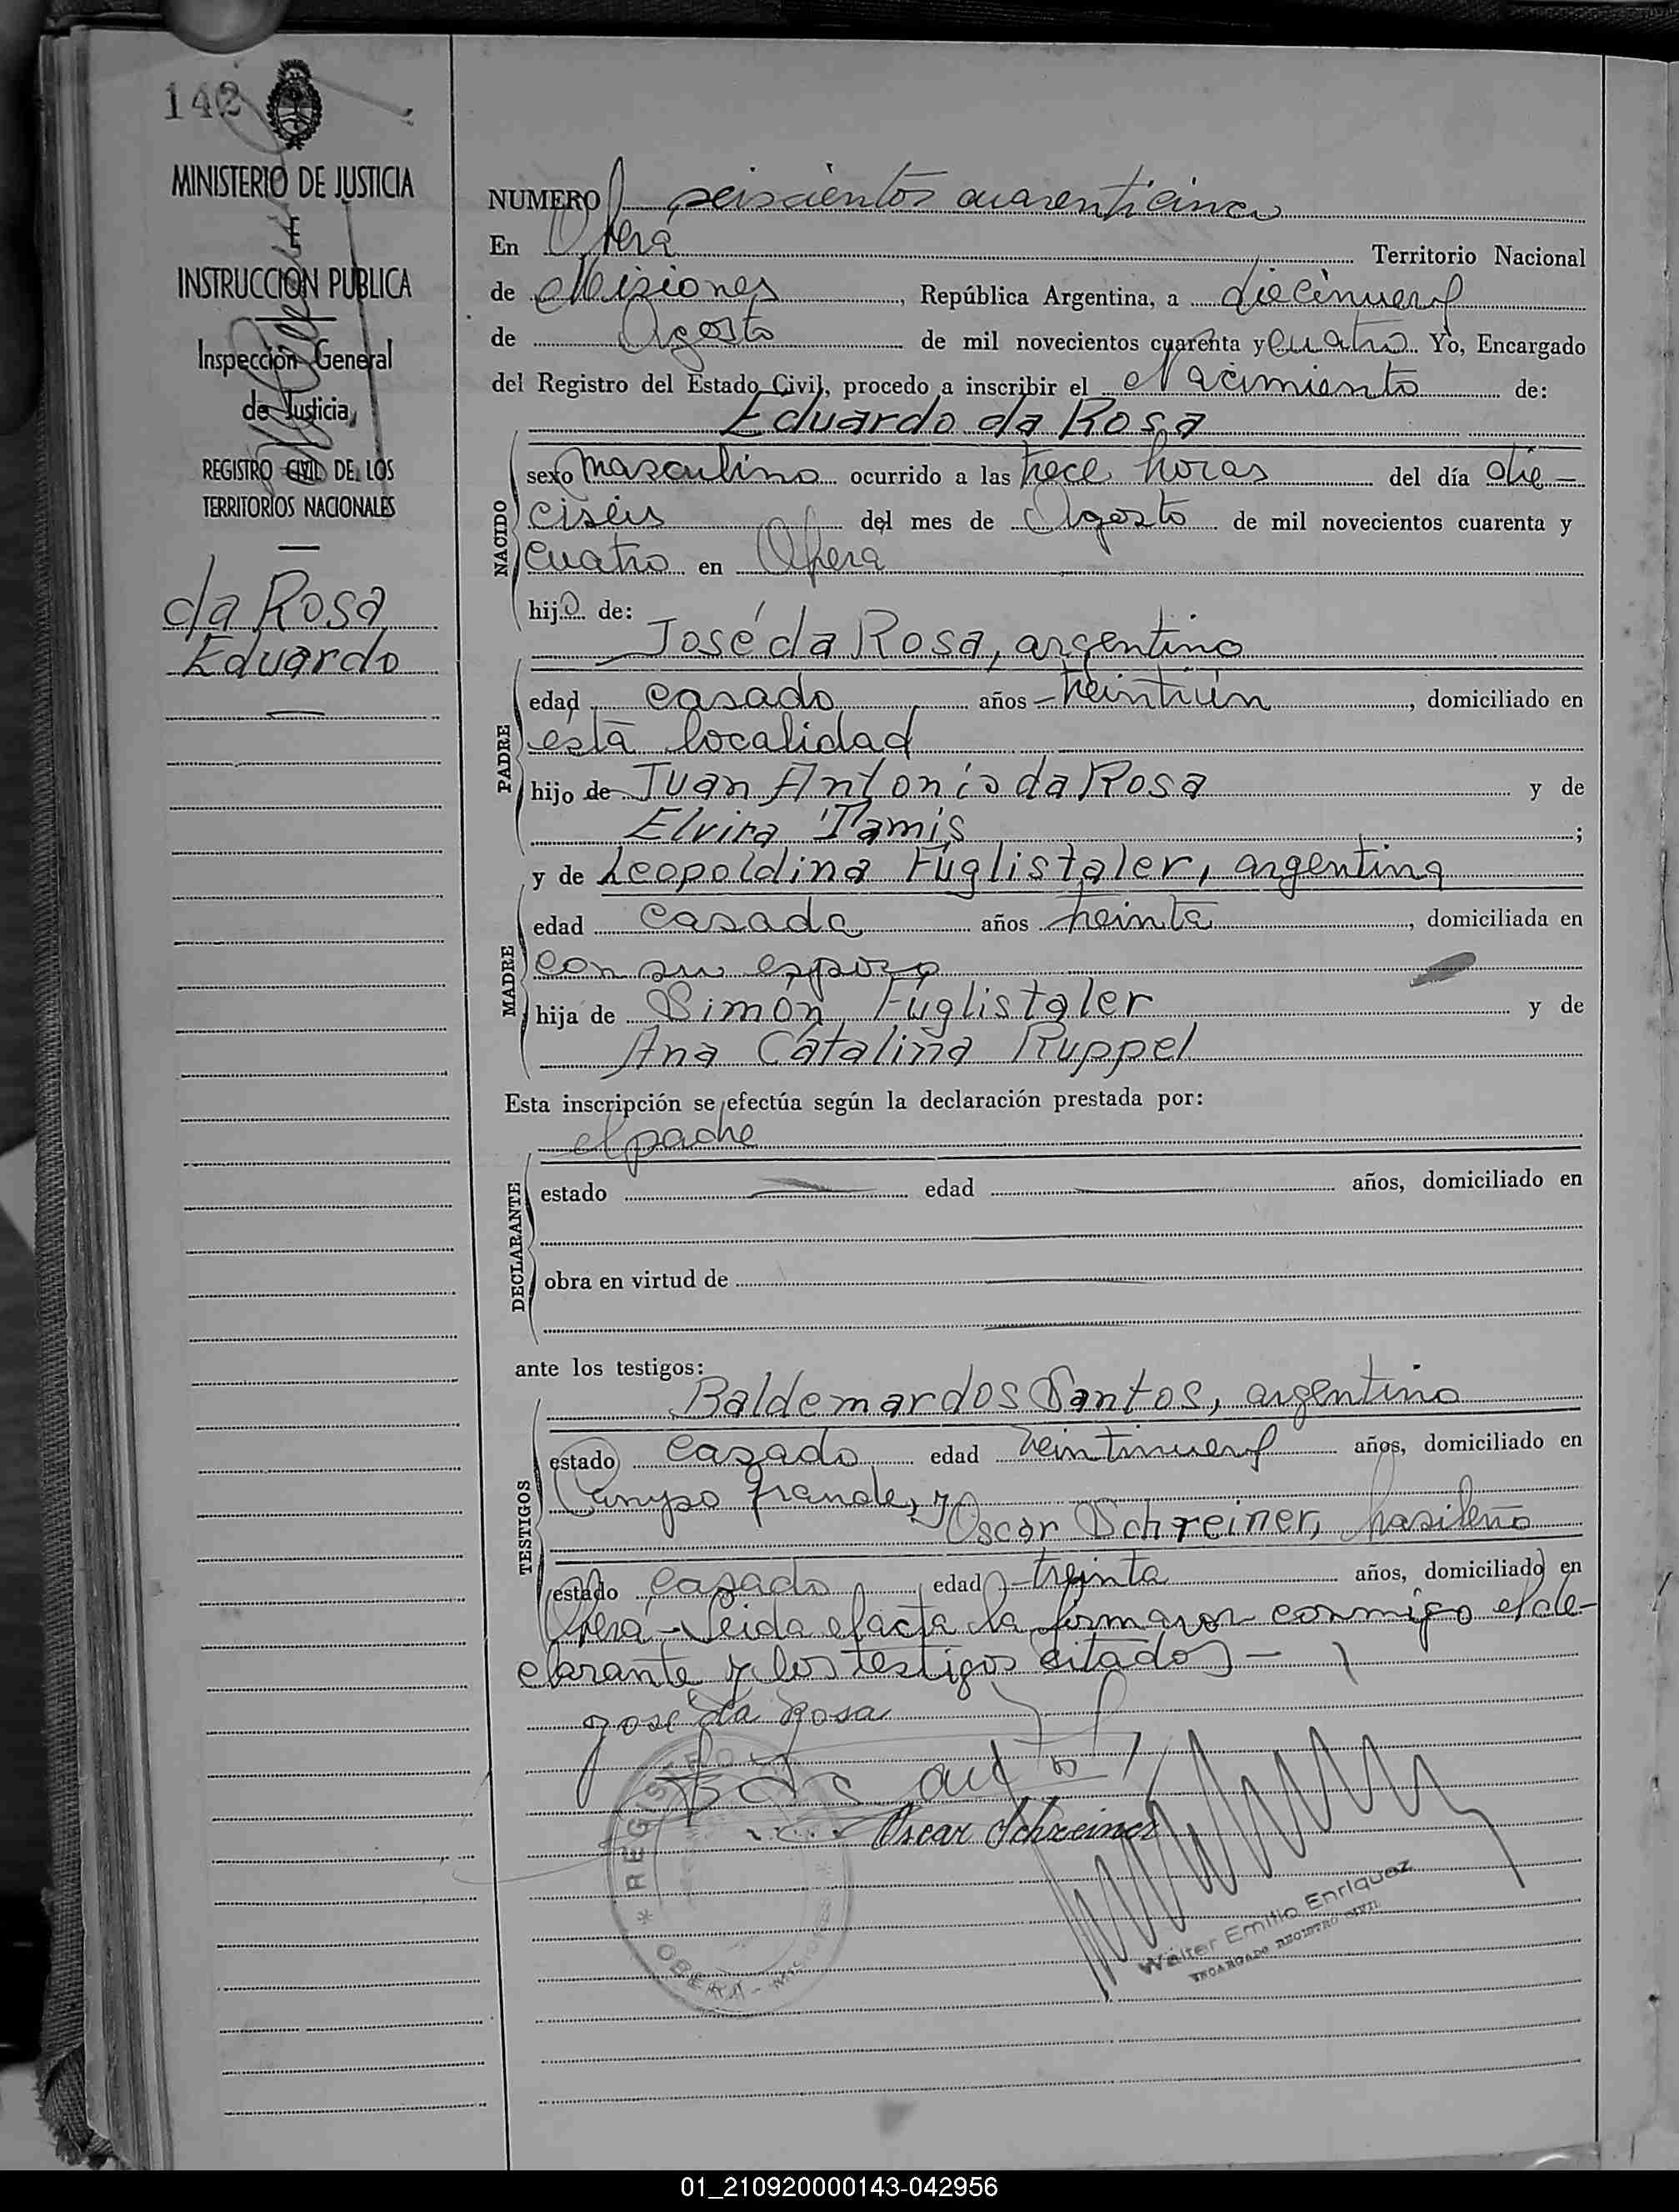 142
MINISTERIO DE JUSTICIA
E
INSTRUCCION PUBLICA
Inspección General
de Justicia
REGISTRO CIVIL DE LOS
TERRITORIOS NACIONALES
da Rosa
Eduardo
NUMERO seiscientos cuarenticinco
En Oberá Territorio Nacional
de Misiones, República Argentina, a diecinueve
de Agosto de mil novecientos cuarenta y cuatro Yo, Encargado
del Registro del Estado Civil, procedo a inscribir el Nacimiento de:
Eduardo da Rosa
NACIDO
sexo masculino ocurrido a las trece horas del día die-
ciseis del mes de Agosto de mil novecientos cuarenta y
cuatro en Oberá
hijo de:
José da Rosa, argentino
PADRE
edad casado años treintiún, domiciliado en
esta localidad
hijo de Juan Antonio da Rosa y de
Elvira Tamis;
y de Leopoldina Füglistaler, argentina
MADRE
edad casada años treinta, domiciliada en
con su esposo
hija de Simón Füglistaler y de
Ana Catalina Ruppel
Esta inscripción se efectúa según la declaración prestada por:
el padre
DECLARANTE
estado edad años, domiciliado en
obra en virtud de
ante los testigos:
Baldemar dos Santos, argentino
TESTIGOS
estado casado edad veintinueve años, domiciliado en
Campo Grande, y
Oscar Schreiner, brasileño
estado casado edad treinta años, domiciliado en
Oberá - Leida el acta la firmaron conmigo el de-
clarante y los testigos citados -
Jose da Rosa
Oscar Schreiner
* REGISTRO
OBERA - MISIONES *
Walter Emilio Enriquez
ENCARGADO REGISTRO CIVIL
01_210920000143-042956